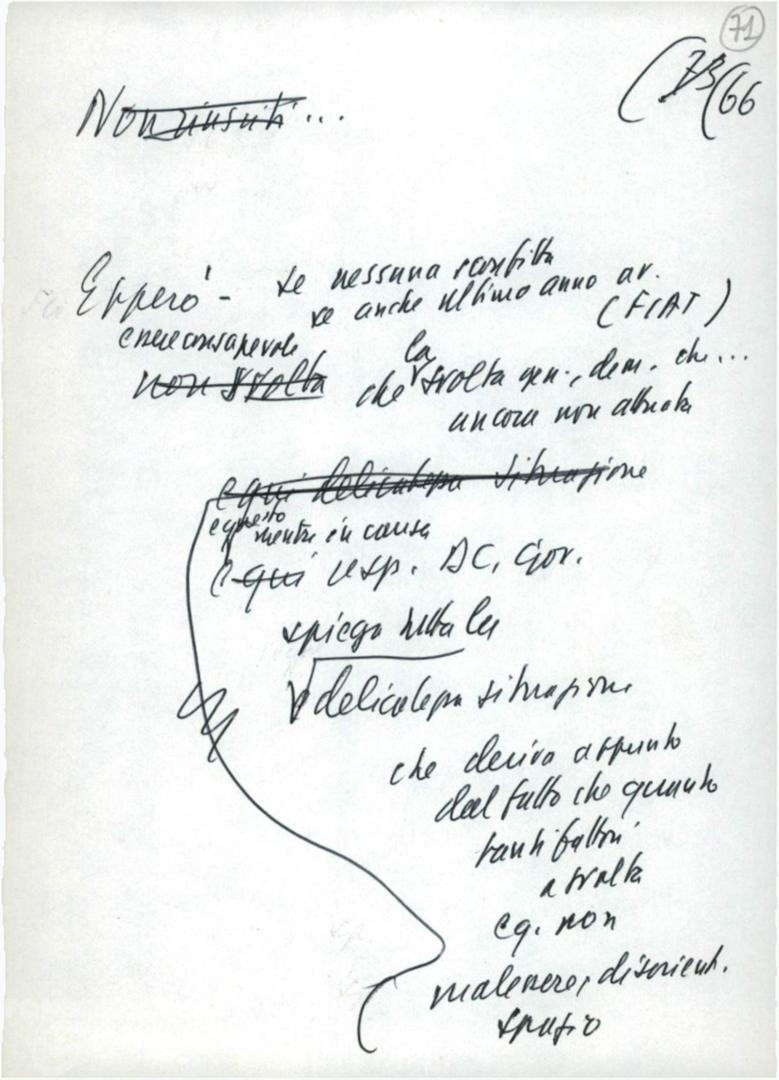 71
(73(66
Non riusciti...
Epperò - se nessuna sconfitta
se anche ultimo anno av.
(FIAT)
essere consapevole
la
non svolta che svolta gen., dem. che...
ancora non attuata
e qui delicatezza situazione
e questo
mette in causa
e qui resp. DC, Gov.
spiega tutta la
delicatezza situazione
che deriva appunto
dal fatto che quanto
tanti fattori
a svolta
eq. non
malessere, disorient.
spazio